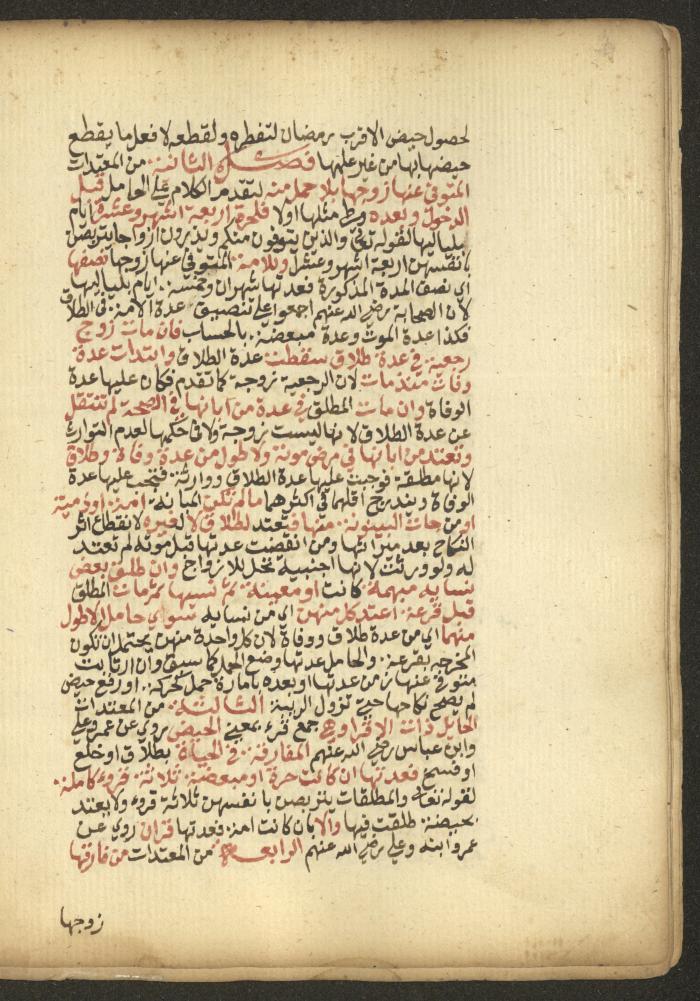 لحصول حيض الاقرب برمضان لتفطره ولقطعه لا فعل ما يقطع
حيضها بها من غير علمها فصل الثانية من المعتدات
المتوفى عنها زوجها بلا حمل منه لتقدم الكلام على الحامل قبل
الدخول وبعده وطئ مثلها اولا فلحرة اربعة اشهر وعشرة ايام
بلياليها لقوله تعالى والذين يتوفون منكم ويذرون ازواجا يتربصن
بانفسهن اربعة اشهر وعشرا وللامة المتوفى عنها زوجها نصفها
اي نصف المدة المذكورة فعدتها شهران وخمسة ايام بلياليها
لان الصحابة رضي الله عنهم اجمعوا على تنصيف عدة الامة في الطلاق
فكذا عدة الموت وعدة مبعضة بالحساب فان مات زوج
رجعية في عدة طلاق سقطت عدة الطلاق وابتدات عدة
وفات منذ مات لان الرجعية زوجة كما تقدم فكان عليها عدة
الوفاة وان مات المطلق في عدة من ابانها في الصحة لم تنتقل
عن عدة الطلاق لانها ليست زوجة ولا في حكمها لعدم التوارث
وتعتد من ابانها في مرض موته ولاطول من عدة وفاة وطلاق
لانها مطلقة فوجبت عليها عدة الطلاق ووارثة فتجب عليها عدة
الوفاة ويندرج اقلهما في اكثرهما ما لم تكن المبانة امة او ذمية
او من جات البينونة منها فتعتد لطلاق لا لغيره لانقطاع اثر
النكاح بعد ميراثها ومن انقضت عدتها قبل موته لم تعتد
له ولو ورثت لانها اجنبية تحل للازواج وان طلق بعض
نسايه مبهمة كانت او معينة ثم نسيها ثم مات المطلق
قبل قرعة اعتد كل منهن اي من نسايه سوى حامل الاطول
منهما اي من عدة طلاق ووفاة لان كل واحدة منهن يحتمل ان تكون
المخرجة بقرعة والحامل عدتها وضع الحمل كما سبق وان ارتابت
متوفى عنها زمن عدتها او بعده بامارة حمل كحركة او رفع حيض
لم يصح نكاحها حتى تزول الريبة الثالثة من المعتدات
الحايل ذات الاقراء وهي جمع قرء بمعنى الحيض روي عن عمر وعلي
وابن عباس رضي الله عنهم المفارقة في الحياة بطلاق او خلع
او فسخ فعدتها ان كانت حرة او مبعضة ثلاثة قروء كاملة
لقوله تعالى والمطلقات يتربصن بانفسهن ثلاثة قروء ولا يعتد
بحيضة طلقت فيها والا بان كانت امة فعدتها قران روي عن
عمر وابنه وعلي رضي الله عنهم الرابعة من المعتدات من فارقها
زوجها